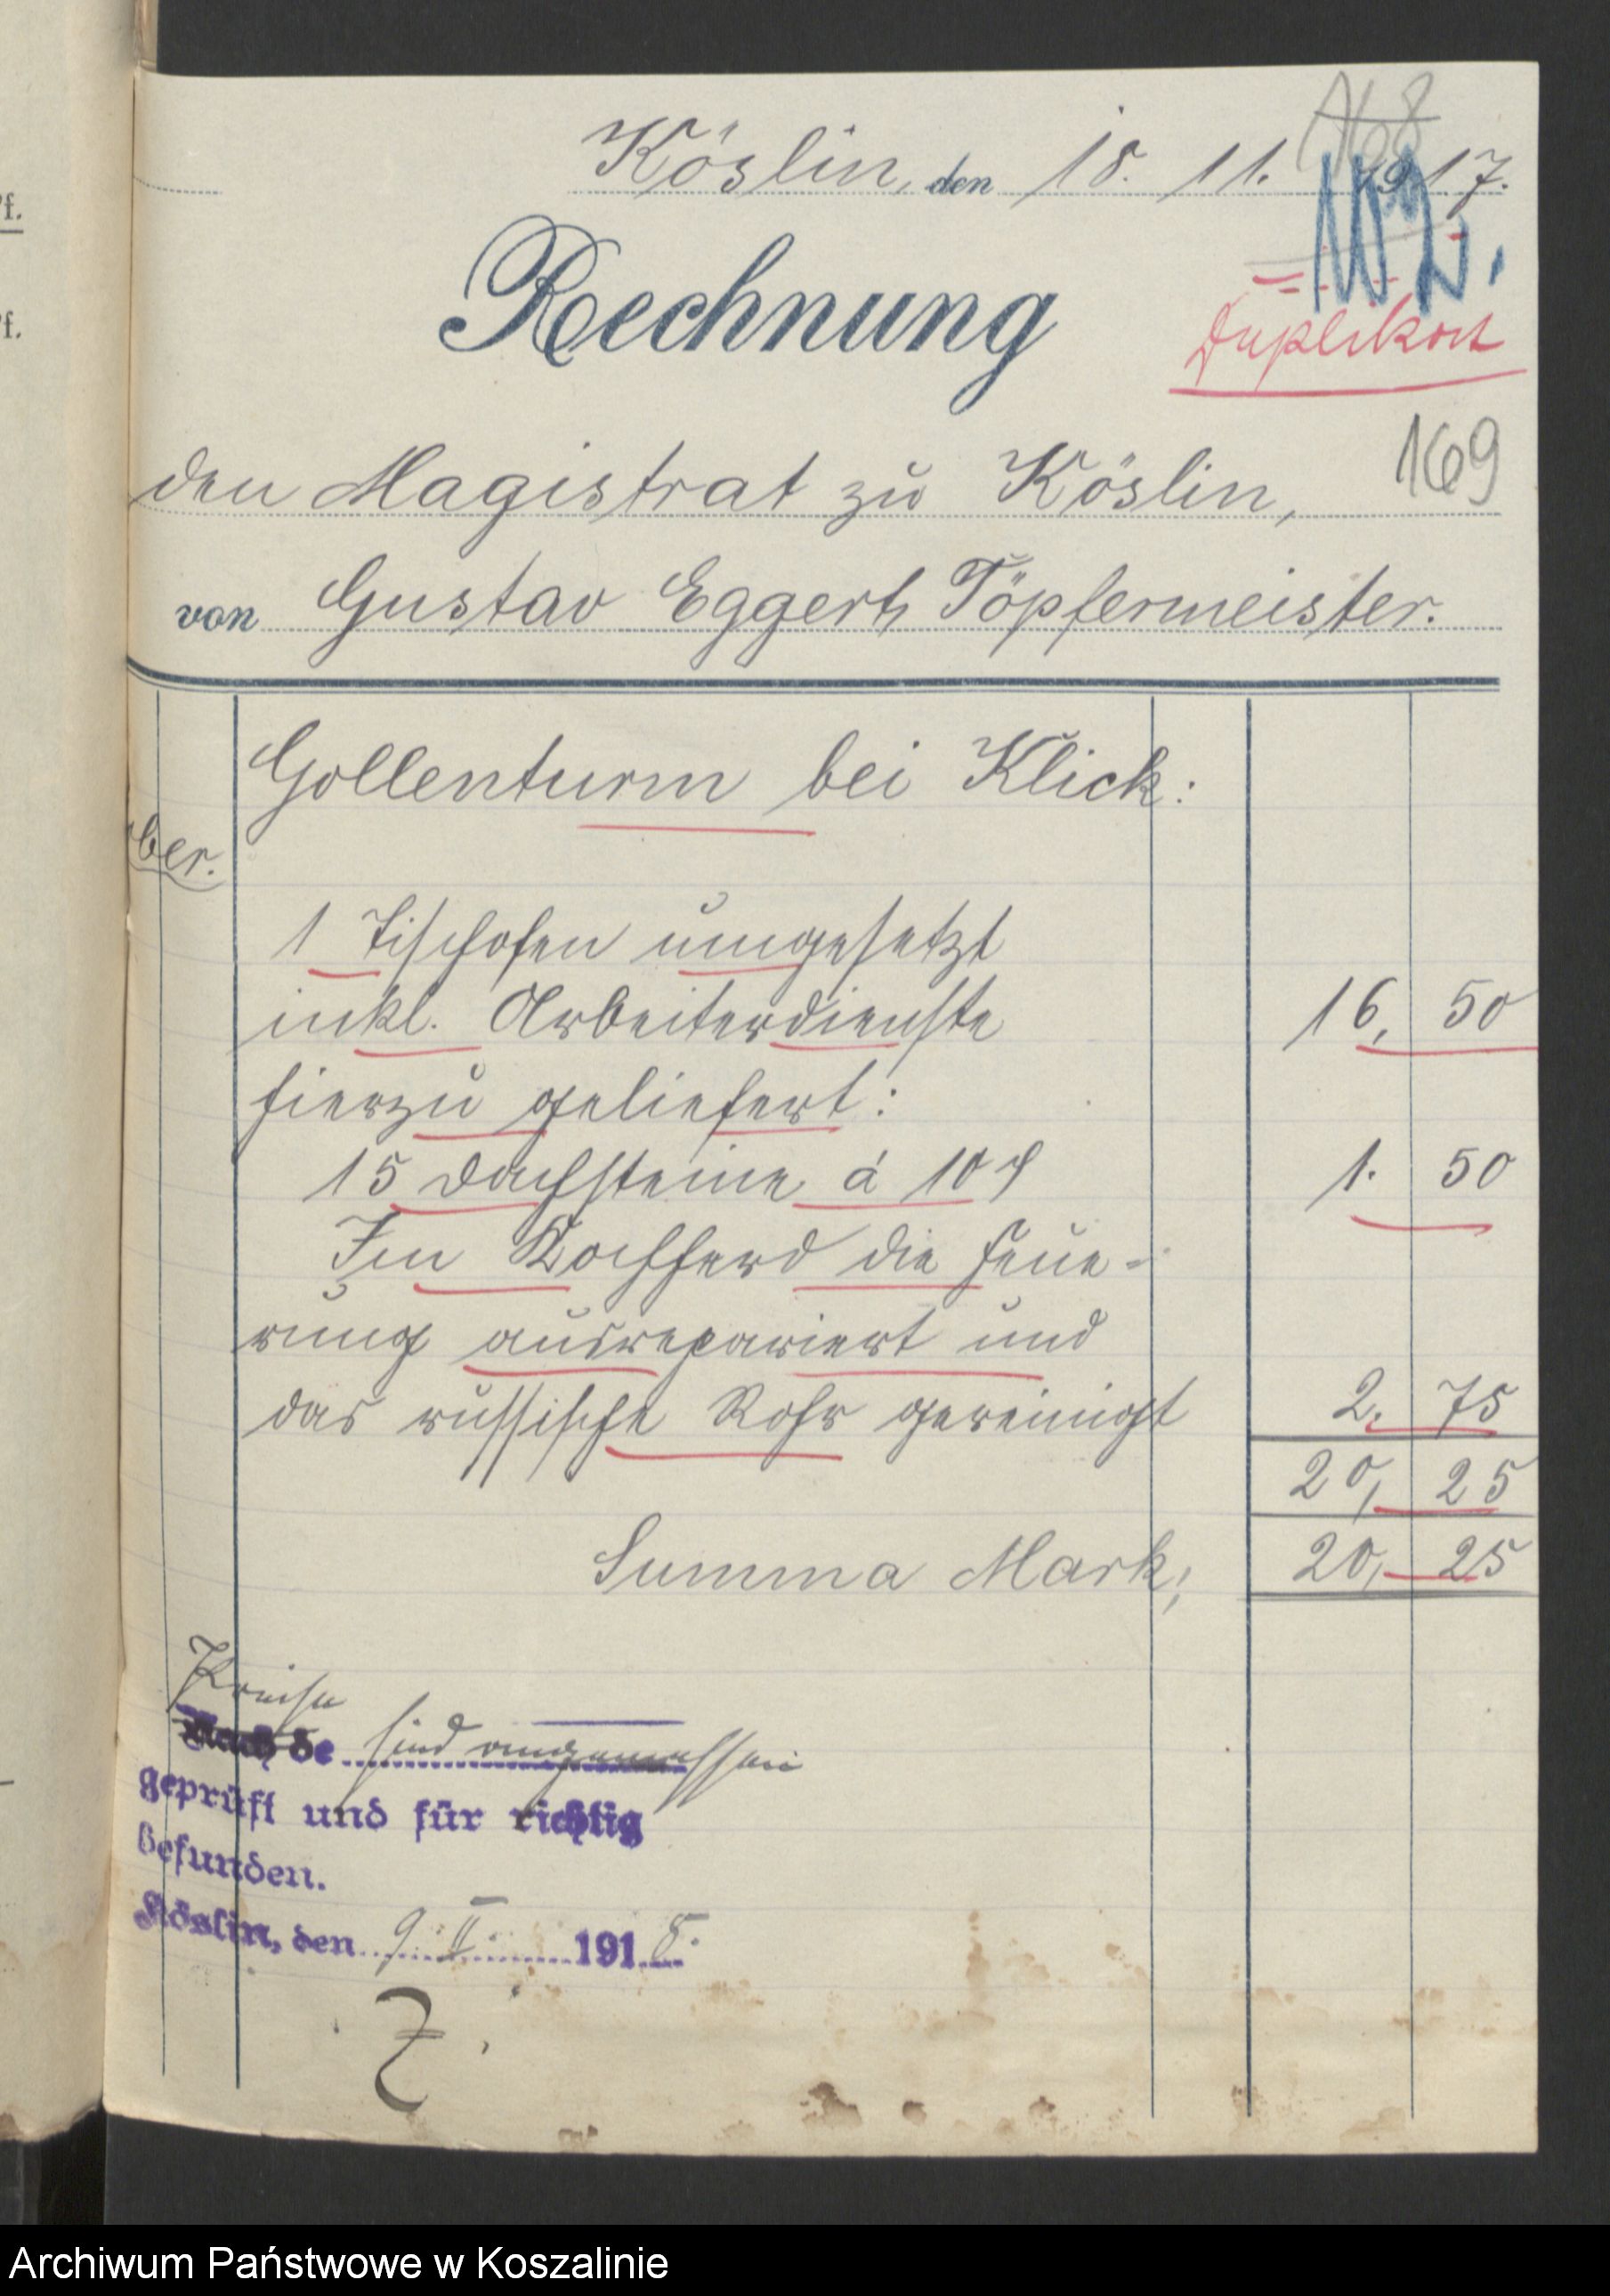 Köslin, den 18. 11. 1917.
Rechnung
Duplikat
169
den Magistrat zu Köslin,
von Gustav Eggert, Töpfermeister.
Gollenturm bei Klick:
ber.
1 Tischofen umgesetzt
inkl. Arbeiterdienste 16, 50
hierzu geliefert:
15 Dachsteine á 10 ₰ 1. 50
Im Kochherd die Feue-
rung ausrepariert und
das russische Rohr gereinigt 2. 75
20, 25
Summa Mark; 20, 25
Preise
Nach de sind angemessen
geprüft und für richtig
befunden.
Köslin, den 9. II. 1918.
Pf.
Pf.
Archiwum Państwowe w Koszalinie